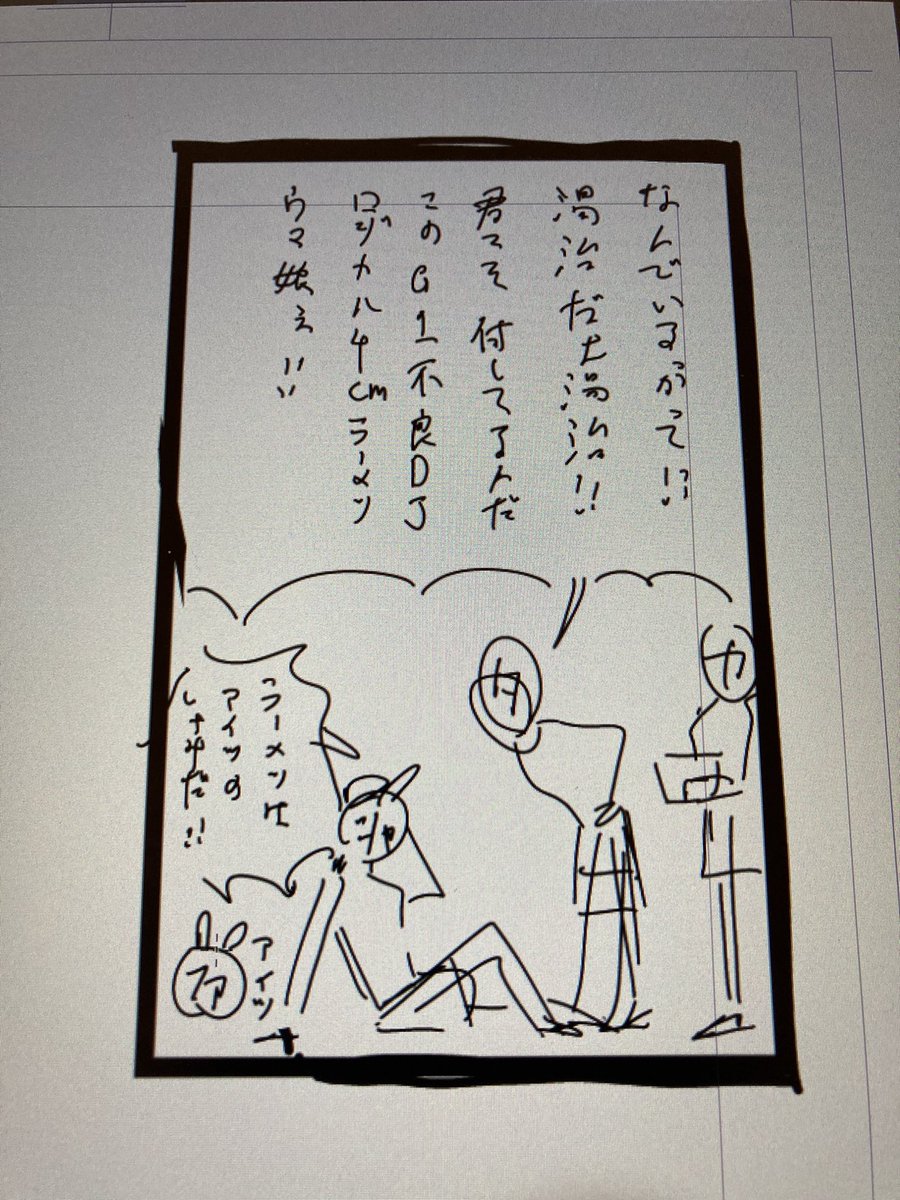 なんでいるかって!!
湯治だよ湯治!!
君こそ何してるんだ
このG1不良DJ
ロジカル4cmラーメン
ウマ娘ぇ!!
ラーメンは
アイツの
しわざだ!!
カ
タ
シャ
ファ
アイツ